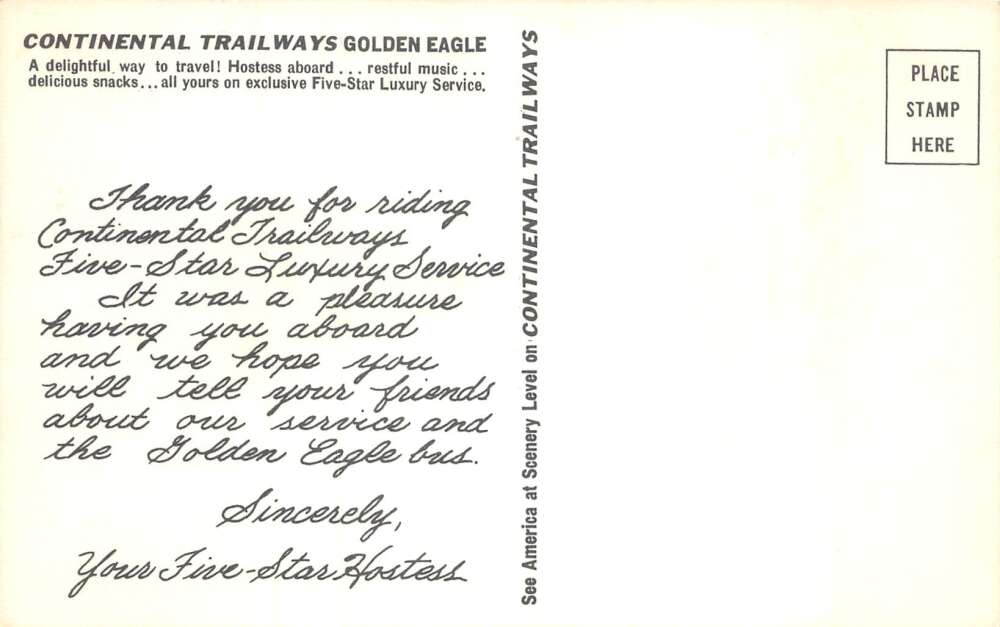 CONTINENTAL TRAILWAYS GOLDEN EAGLE
A delightful way to travel! Hostess aboard . . . restful music . . .
delicious snacks . . . all yours on exclusive Five-Star Luxury Service.
Thank you for riding
Continental Trailways
Five-Star Luxury Service
It was a pleasure
having you aboard
and we hope you
will tell your friends
about our service and
the Golden Eagle bus.
Sincerely,
Your Five-Star Hostess
See America at Scenery Level on CONTINENTAL TRAILWAYS
PLACE
STAMP
HERE